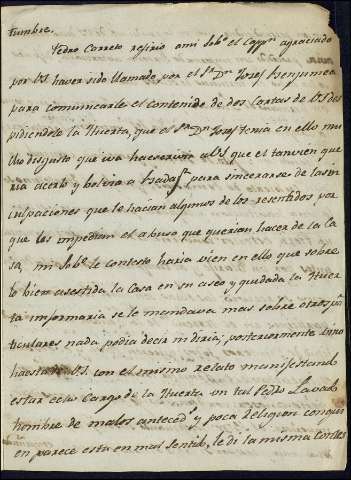 tumbre.
Pedro Correto refirio ami Sobº el Cappn agraciado
por VS haver sido llamado por el Sr Dn Josef Benjumea
para comunicarle el contenido de dos Cartas de VS des
pidiendole la Huerta, que el Sr Dn Josef tenia en ello mu
cho disgusto que iva haescrivir a VS que el tanvien que
ria acerlo y bolvio a para sincerarse de las in
culpaciones que le hacian algunos de los resentidos por
que les impedian el abuso que querian hacer de la Ca
sa, mi Sobº le contesto haria vien en ello que sobre
lo bien asestida la Casa en su aseo y quidada la Huer
ta informaria se le mandava mas sobre otros par
ticulares nada podia decir ni diria; posteriormente
VS. con el mismo relato manifestand
estar ecso Cargo de la Huerta un tal Pedro Lavad
hombre de malos anteceds y poca Religion conqui
en parece esta en mal Sentido, le di la misma Contes